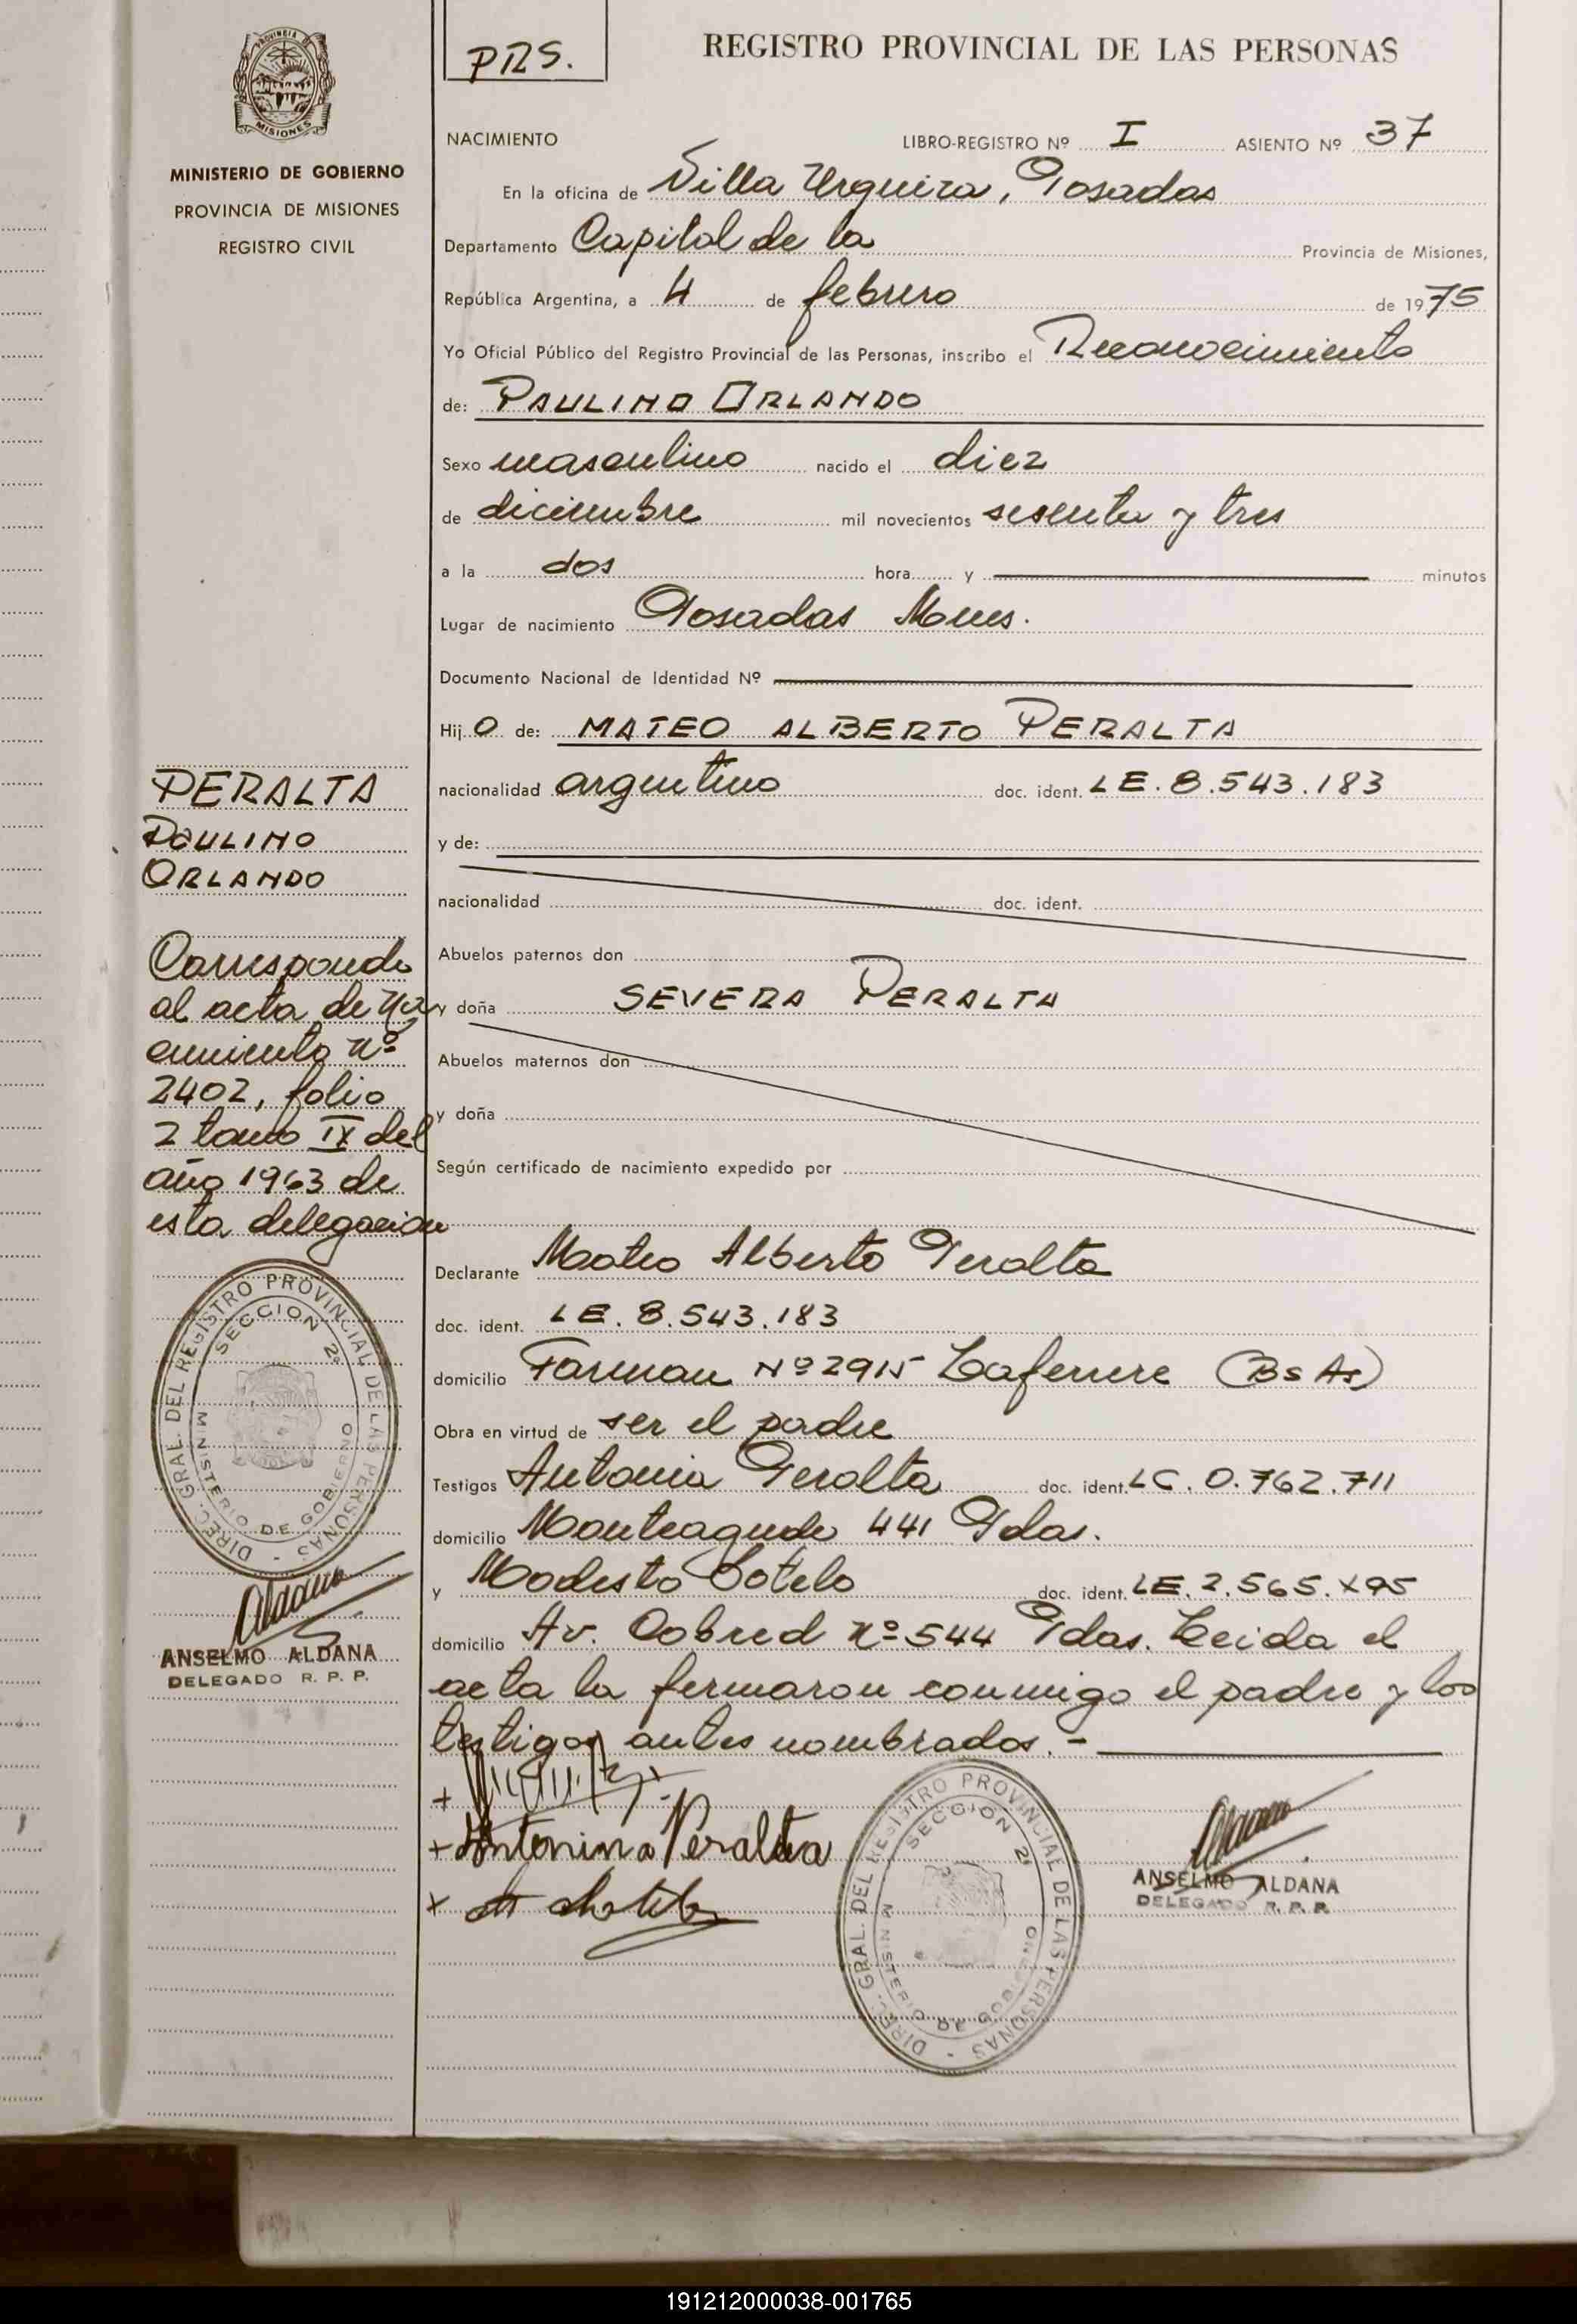 PROVINCIA DE
MISIONES
MINISTERIO DE GOBIERNO
PROVINCIA DE MISIONES
REGISTRO CIVIL
PRS.
REGISTRO PROVINCIAL DE LAS PERSONAS
NACIMIENTO LIBRO-REGISTRO Nº I ASIENTO Nº 37
En la oficina de Villa Urquiza, Posadas
Departamento Capital de la Provincia de Misiones,
República Argentina, a 4 de febrero de 1975
Yo Oficial Público del Registro Provincial de las Personas, inscribo el Reconocimiento
de: PAULINO ORLANDO
Sexo masculino nacido el diez
de diciembre mil novecientos sesenta y tres
a la dos hora y minutos
Lugar de nacimiento Posadas Mnes.
Documento Nacional de Identidad Nº
Hijo de: MATEO ALBERTO PERALTA
nacionalidad argentino doc. ident. LE. 8.543.183
y de:
nacionalidad doc. ident.
Abuelos paternos don
y doña SEVERA PERALTA
Abuelos maternos don
y doña
Según certificado de nacimiento expedido por
Declarante Mateo Alberto Peralta
doc. ident. LE. 8.543.183
domicilio Farman Nº 2915 Laferrere (Bs As)
Obra en virtud de ser el padre
Testigos Antonia Peralta doc. ident. LC. 0.762.711
domicilio Monteagudo 441 Pdas.
y Modesto Sotelo doc. ident. LE. 2.565.
domicilio Av. Cabred nº 544 Pdas. Leida el
acta la fermaron conmigo el padre y los
testigos antes nombrados. -
+
+ Antonina Peralta
x
PERALTA
PAULINO
ORLANDO
Corresponde
al acta de Na
cimiento nº
2402, folio
2 tomo IX del
año 1963 de
esta delegación
DIREC. GRAL. DEL REGISTRO PROVINCIAL DE LAS PERSONAS -
SECCION 2ª
MINISTERIO DE GOBIERNO
ANSELMO ALDANA
DELEGADO R. P. P.
DIREC. GRAL. DEL REGISTRO PROVINCIAL DE LAS PERSONAS -
SECCION 2ª
MINISTERIO DE GOBIERNO
ANSELMO ALDANA
DELEGADO R. P. P.
191212000038-001765